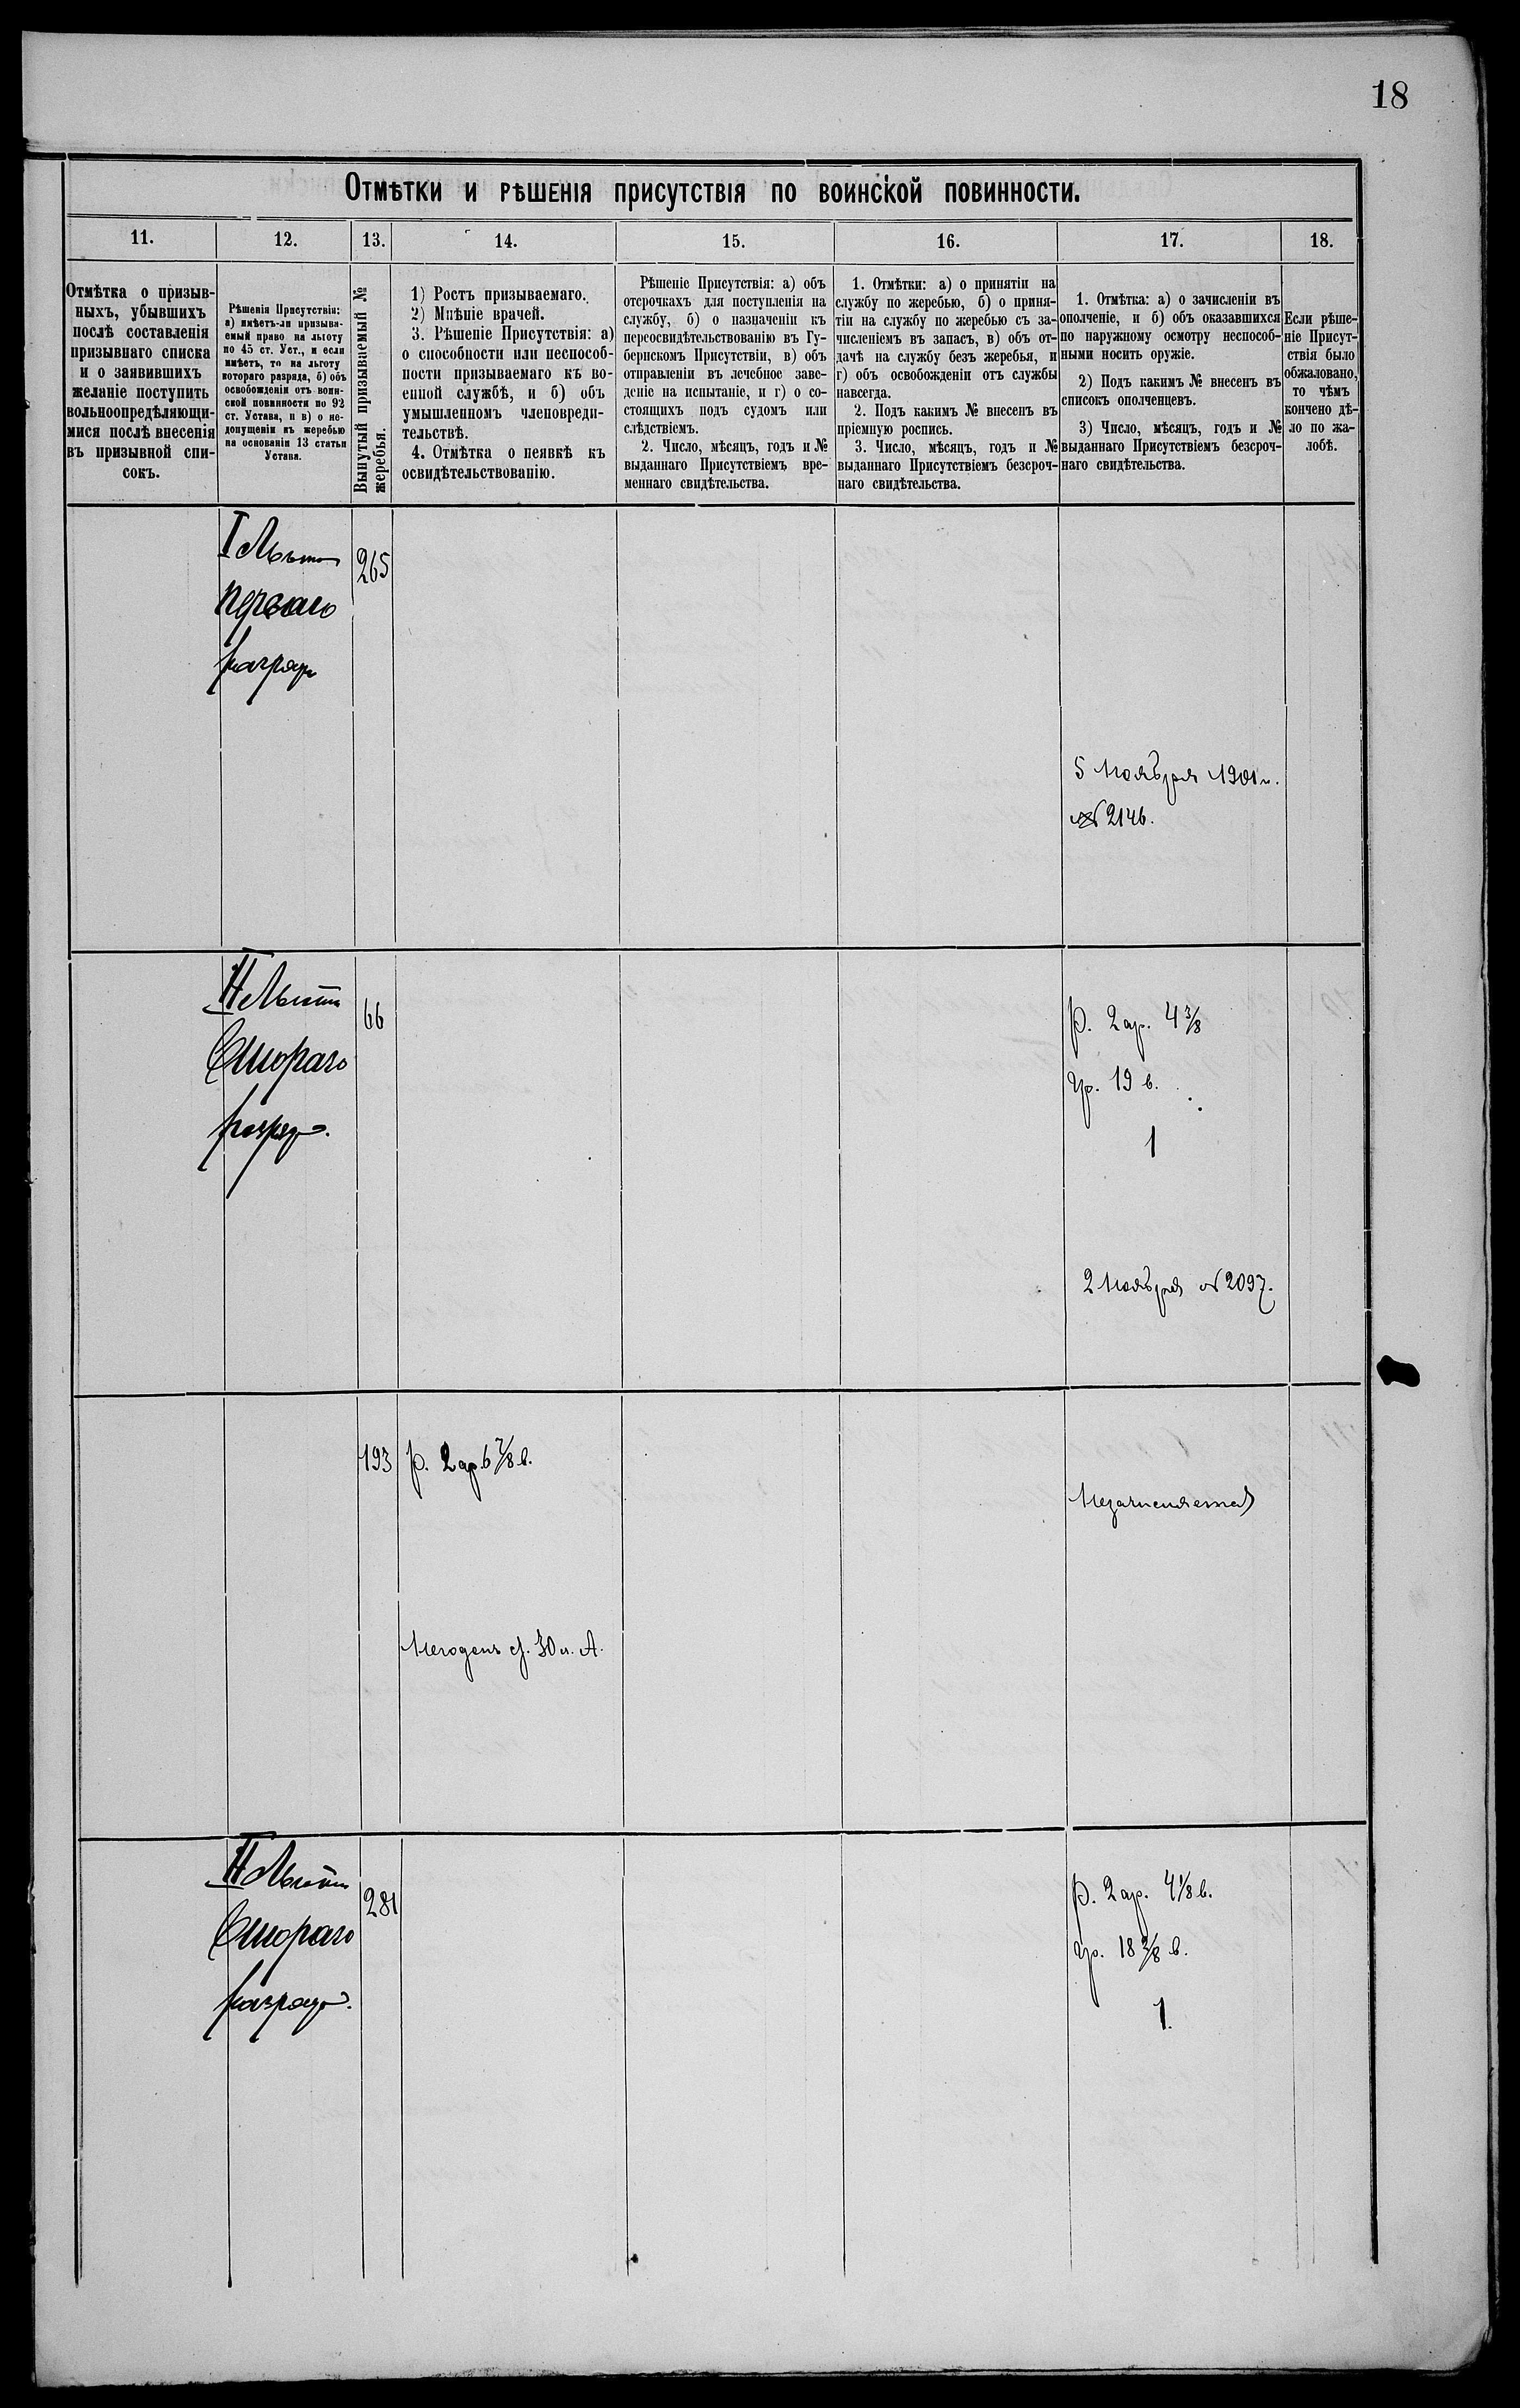 18
Отмѣтки и рѣшенія присутствія по воинской повинности.
11.
12.
13.
14.
15.
16.
17.
18.
Отмѣтка о призыв-
ныхъ, убывшихъ
послѣ составленія
призывнаго списка
и о заявившихъ
желаніе поступить
вольноопредѣляющи-
мися послѣ внесенія
въ призывной спи-
сокъ.
Рѣшенія Присутствія:
а) имѣетъ-ли призыва-
емый право на льготу
по 45 ст. Уст., и если
имѣетъ, то на льготу
котораго разряда, б) объ
освобожденіи отъ воин-
ской повинности по 92
ст. Устава, и в) о не-
допущеніи къ жеребью
на основаніи 13 статьи
Устава.
Вынутый призываемый №
жеребья.
1) Ростъ призываемаго.
2) Мнѣніе врачей.
3. Рѣшеніе Присутствія: а)
о способности или неспособ-
ности призываемаго къ во-
енной службѣ, и б) объ
умышленномъ членовреди-
тельствѣ.
4. Отмѣтка о неявкѣ къ
освидѣтельствованію.
Рѣшеніе Присутствія: а) объ
отсрочкахъ для поступленія на
службу, б) о назначеніи къ
переосвидѣтельствованію въ Гу-
бернскомъ Присутствіи, в) объ
отправленіи въ лечебное заве-
деніе на испытаніе, и г) о со-
стоящихъ подъ судомъ или
слѣдствіемъ.
2. Число, мѣсяцъ, годъ и №
выданнаго Присутствіемъ вре-
меннаго свидѣтельства.
1. Отмѣтки: а) о принятіи на
службу по жеребью, б) о приня-
тіи на службу по жеребью съ за-
численіемъ въ запасъ, в) объ от-
дачѣ на службу безъ жеребья, и
г) объ освобожденіи отъ службы
навсегда.
2. Подъ какимъ № внесенъ въ
пріемную роспись.
3. Число, мѣсяцъ, годъ и №
выданнаго Присутствіемъ безсроч-
наго свидѣтельства.
1. Отмѣтка: а) о зачисленіи въ
ополченіе, и б) объ оказавшихся
по наружному осмотру неспособ-
ными носить оружіе.
2) Подъ какимъ № внесенъ въ
списокъ ополченцевъ.
3) Число, мѣсяцъ, годъ и №
выданнаго Присутствіемъ безсроч-
наго свидѣтельства.
Если рѣше-
ніе Присут-
ствія было
обжаловано,
то чѣмъ
кончено дѣ-
ло по жа-
лобѣ.
I Льгота
перваго
разряда
265
5 Ноября 1901 г.
№ 2146.
II Льгота
Второго
разряда.
66
р. 2 ар. 4 3/8
гр. 19 в.
1
2 Ноября № 2097.
193
р. 2 ар. 6 7/8 в.
Незачисляется
Негоденъ
II Льгота
Второго
разряда.
281
р. 2 ар. 4 1/8 в.
гр. 18 2/8 в.
1.